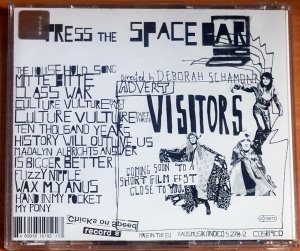 PRESS THE SPACE BAR
THE HOUSEHOLD SONG
MITTE BITTE
CLASS WAR
CULTURE VULTURE
CULTURE VULTURE
TEN THOUSAND YEARS
HISTORY WILL OUTLIVE US
MADALYN ALBRIGHTS ANSWER
IS BIGGER BETTER
FUZZY NIPPLE
WAX MY ANUS
HAND IN MY POCKET
MY PONY
directed by DEBORAH SCHAMONI
ADVERT
VISITORS
COMING SOON TO A
SHORT FILM FEST
CLOSE TO YOU
Chicks on Speed
records
MADE IN THE EU